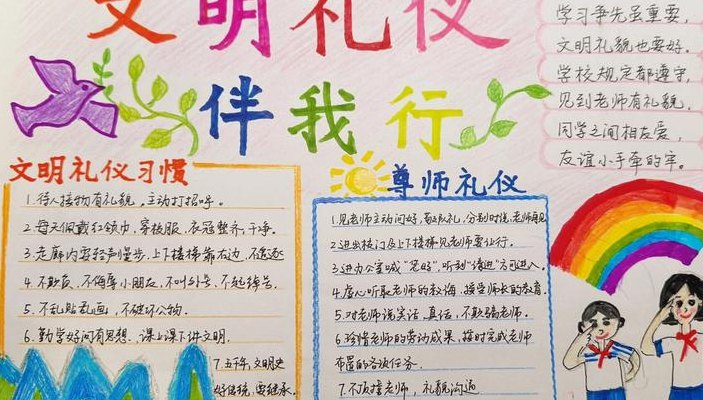 文明礼仪
伴我行
学习争先虽重要,
文明礼貌也要好.
学校规定都遵守,
见到老师有礼貌.
同学之间相友爱,
友谊小手牵的牢.
文明礼仪习惯
1.待人接物有礼貌,主动打招呼.
2.每天佩戴红领巾,穿校服,衣冠整齐,干净.
3.走廊内要轻声慢步,上下楼梯靠右边,不追逐
4.不欺负,不侮辱小朋友,不叫外号,不起绰号.
5.不乱贴乱画,不破坏公物.
6.勤学好问有思想,课上课下讲文明.
7.五千年,文明史
好传统,要继承.
尊师礼仪
1.见老师主动问好,敬队礼,分别时说,老师再见
2.进出校门及上下楼梯见老师要让行.
3.进办公室喊“报告”,听到“请进”方可进入.
4.虚心听取老师的教诲,接受师长的教育.
5.对老师说实话,真话,不欺骗老师.
6.珍惜老师的劳动成果,按时完成老师
布置的各项任务.
7.不顶撞老师,礼貌沟通